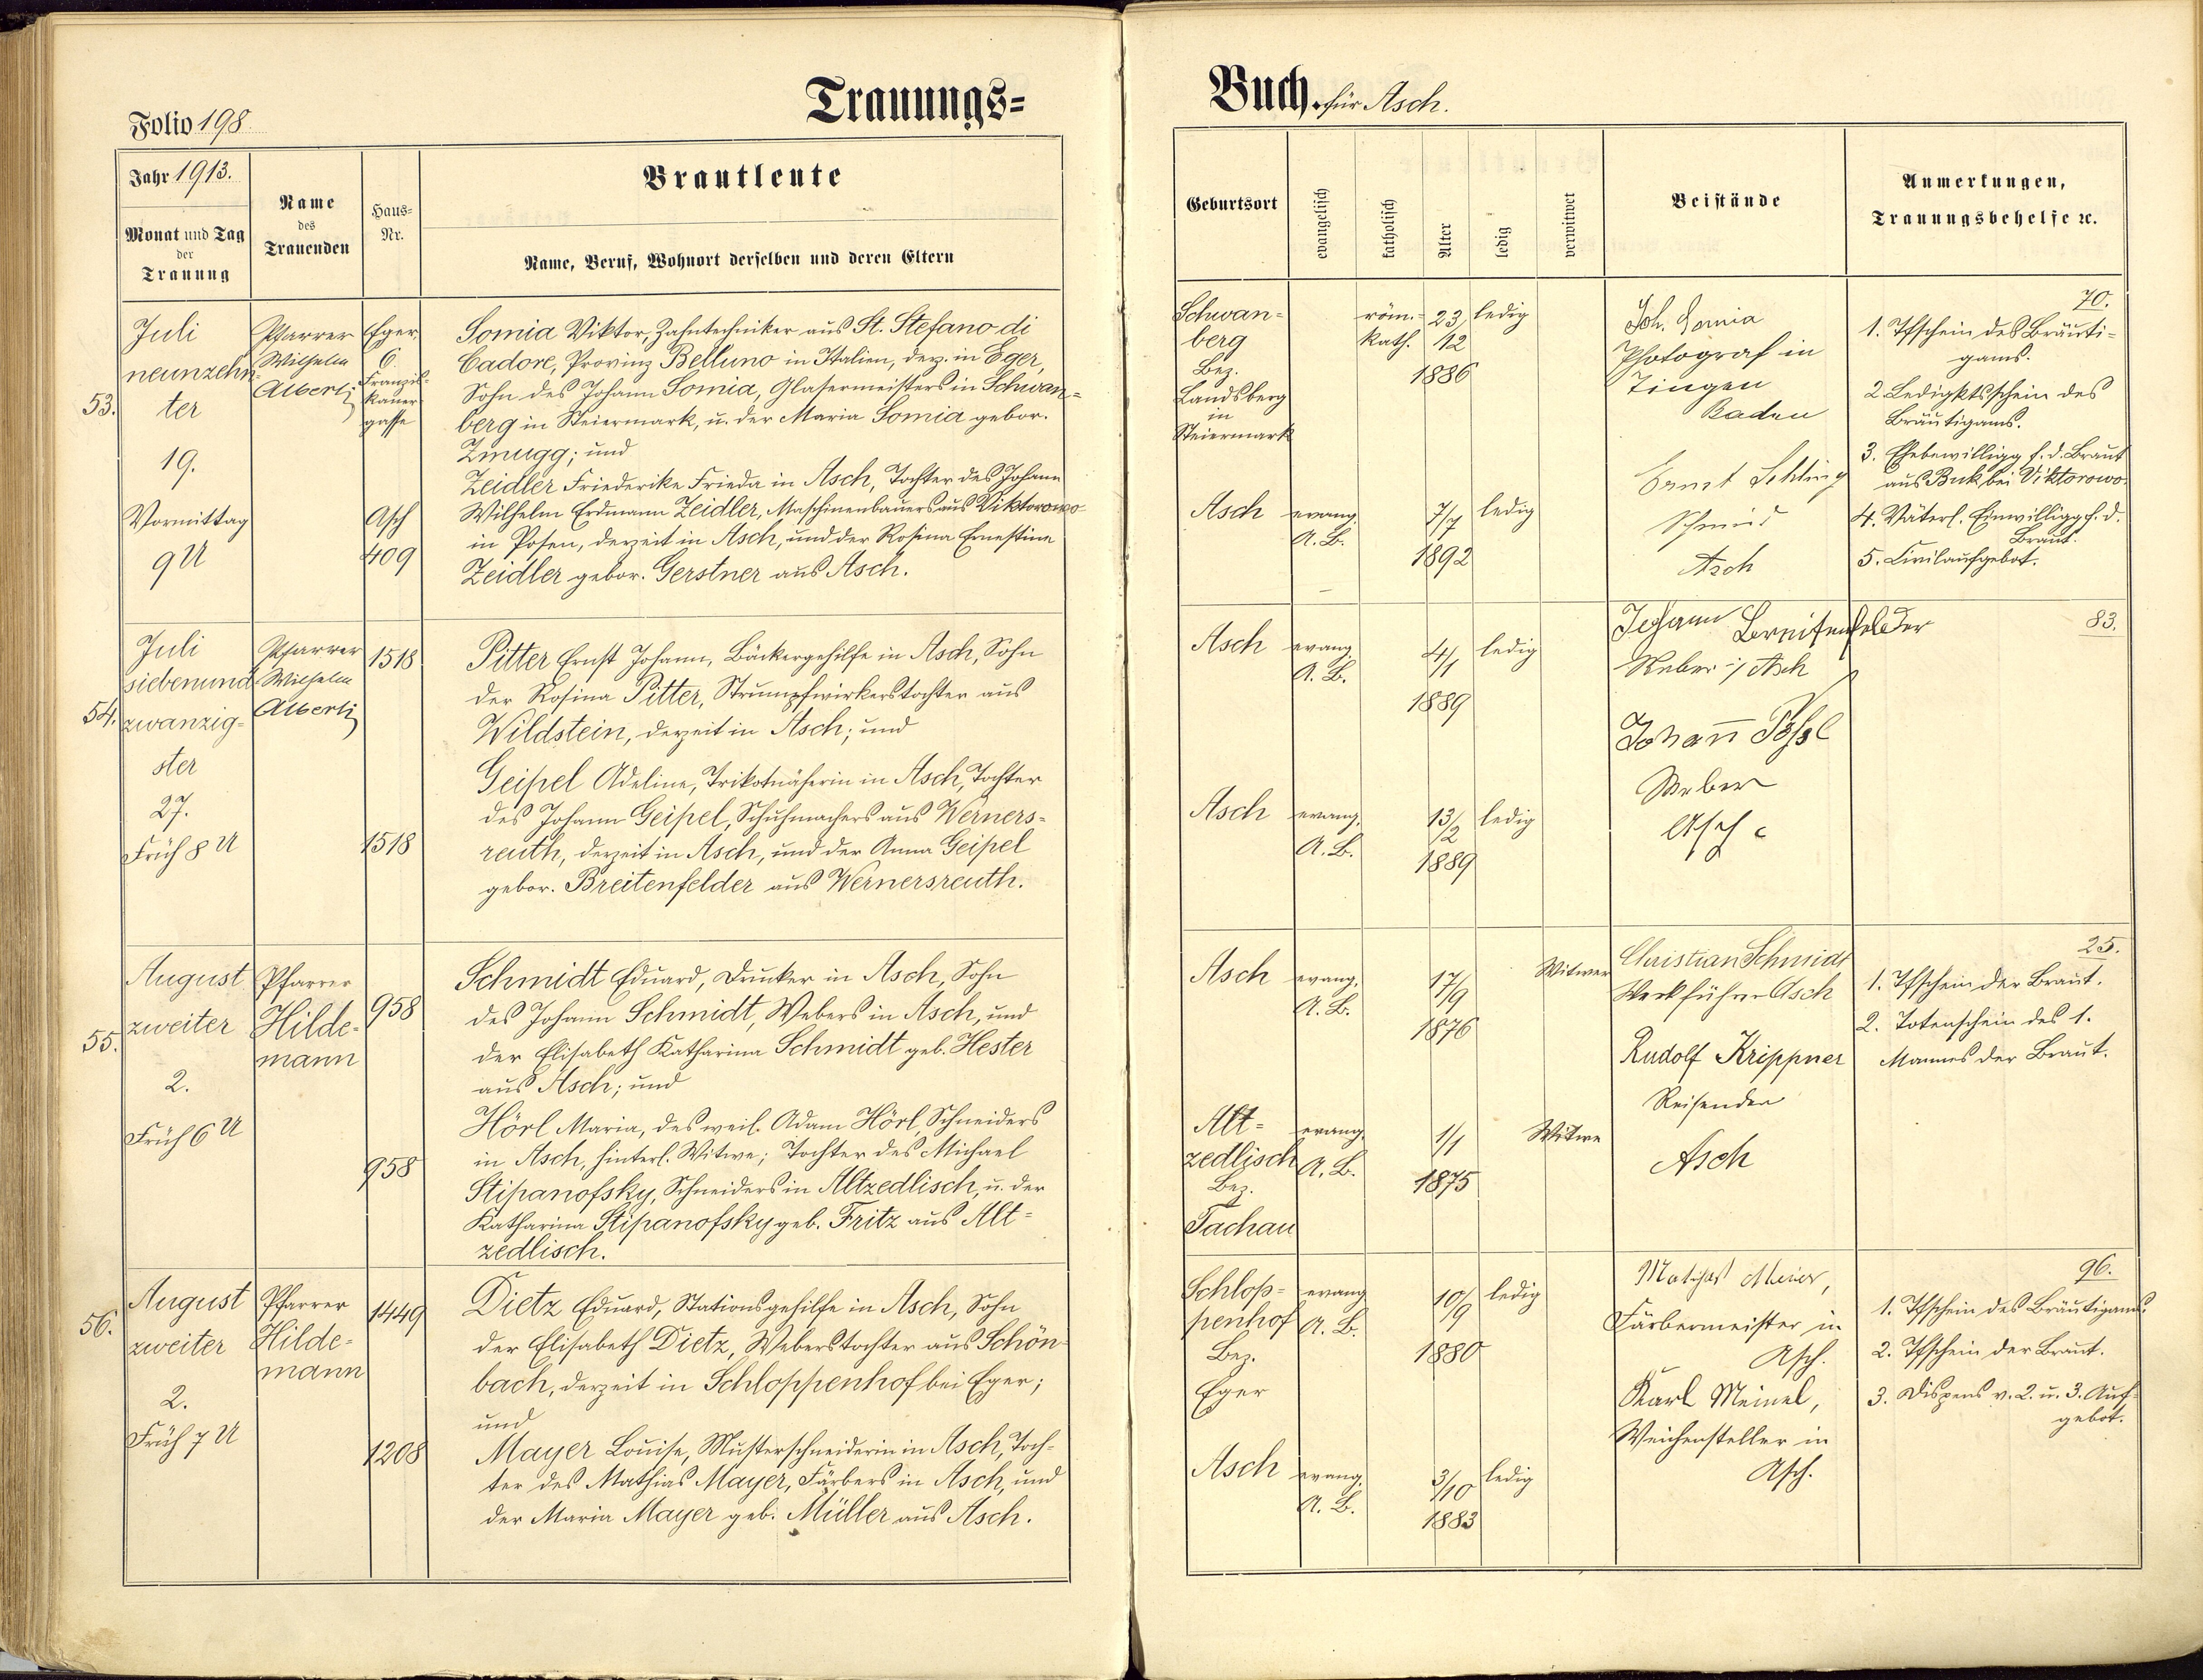 Trauungs=
Buch. für Asch.
Folio 198
Jahr 1913.
Monat und Tag
der
Trauung
Name
des
Trauenden
Haus=
Nr.
Brautleute
Name, Beruf, Wohnort derselben und deren Eltern
Geburtsort
evangelisch
katholisch
Alter
ledig
verwitwet
Beistände
Anmerkungen,
Trauungsbehelfe ꝛc.
53.
Juli
neunzehn=
ter
19.
Vormittag
9 U
Pfarrer
Wilhelm
Alberti
Eger
6
Franzis=
kaner
gasse
Asch
409
Somia Viktor, Zahntechniker aus St. Stefano di
Cadore, Provinz Belluno in Italien, dez. in Eger,
Sohn des Johann Somia, Glasermeisters in Schwan=
berg in Steiermark, u. der Maria Somia gebor.
Zmugg; und
Zeidler Friederike Frieda in Asch, Tochter des Johann
Wilhelm Erdmann Zeidler, Maschinenbauers aus Viktorowo
in Posen, derzeit in Asch, und der Rosina Ernestine
Zeidler gebor. Gerstner aus Asch.
Schwan=
berg
Bez.
Landsberg
in
Steiermark
röm.=
kath.
23/
12
1886
ledig
Asch
evang.
A. B.
7/7
1892
ledig
Joh. Somia
Photograf in
Tiengen
Baden
Ernst Schling
Schmied
Asch
70.
1. Tfschein des Bräuti=
gams.
2 Ledigktsschein des
Bräutigams.
3. Ehebewilligg f. d. Braut
aus Buk bei Viktorowo.
4. Väterl. Einwilligg f. d.
Braut.
5. Civilaufgebot.
54.
Juli
siebenund
zwanzig=
ster
27.
Früh 8 U
Pfarrer
Wilhelm
Alberti
1518
1518
Pitter Ernst Johann, Bäckergehilfe in Asch, Sohn
der Rosina Pitter, Strumpfwirkerstochter aus
Wildstein, derzeit in Asch; und
Geipel Adeline, Trikotnäherin in Asch, Tochter
des Johann Geipel, Schuhmachers aus Werners=
reuth, derzeit in Asch, und der Anna Geipel
gebor. Breitenfelder aus Wernersreuth.
Asch
evang.
A. B.
4/1
1889
ledig
Asch
evang.
A. B.
13/2
1889
ledig
Johann Breitenfelder
Weber i/ Asch
Johann
Weber
Asch
83.
55.
August
zweiter
2.
Früh 6 U
Pfarrer
Hilde=
mann
958
958
Schmidt Eduard, Drucker in Asch, Sohn
des Johann Schmidt, Webers in Asch, und
der Elisabeth Katharina Schmidt geb. Hester
aus Asch; und
Hörl Maria, des weil. Adam Hörl, Schneiders
in Asch, hinterl. Witwe; Tochter des Michael
Stipanofsky, Schneiders in Altzedlisch, u. der
Katharina Stipanofsky geb. Fritz aus Alt=
zedlisch.
Asch
evang.
A. B.
17/9
1876
Witwer
Alt=
zedlisch
Bez.
Tachau
evang.
A. B.
1/1
1875
Witwe
Christian Schmidt
Werkführer Asch
Rudolf Krippner
Reisender
Asch
25.
1. Tfschein der Braut.
2. Totenschein des 1.
Mannes der Braut.
56.
August
zweiter
2.
Früh 7 U
Pfarrer
Hilde=
mann
1449
1208
Dietz Eduard, Stationsgehilfe in Asch, Sohn
der Elisabeth Dietz, Weberstochter aus Schön=
bach, derzeit in Schloppenhof bei Eger;
und
Mayer Louise, Musterschneiderin in Asch, Toch=
ter des Mathias Mayer, Färbers in Asch, und
der Maria Mayer geb. Müller aus Asch.
Schlop=
penhof
Bez.
Eger
evang
A. B.
10/9
1880
ledig
Asch
evang.
A. B.
3/10
1883
ledig
Mathias Meier,
Färbermeister in
Asch.
Karl Meinel,
Weichensteller in
Asch.
96.
1. Tfschein des Bräutigams.
2. Tfschein der Braut.
3. Dispens v. 2. u. 3. Auf=
gebot.